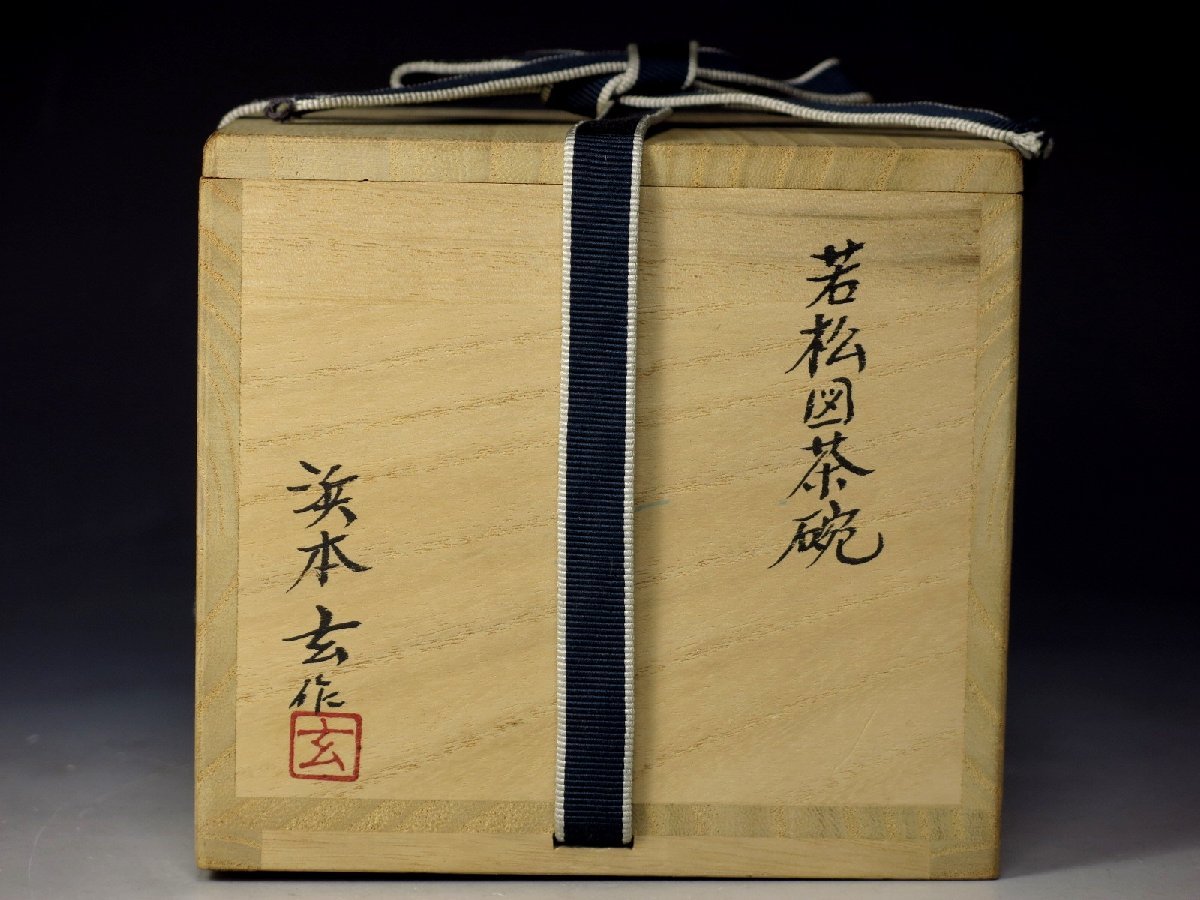 若松図茶碗
浜本玄作
玄